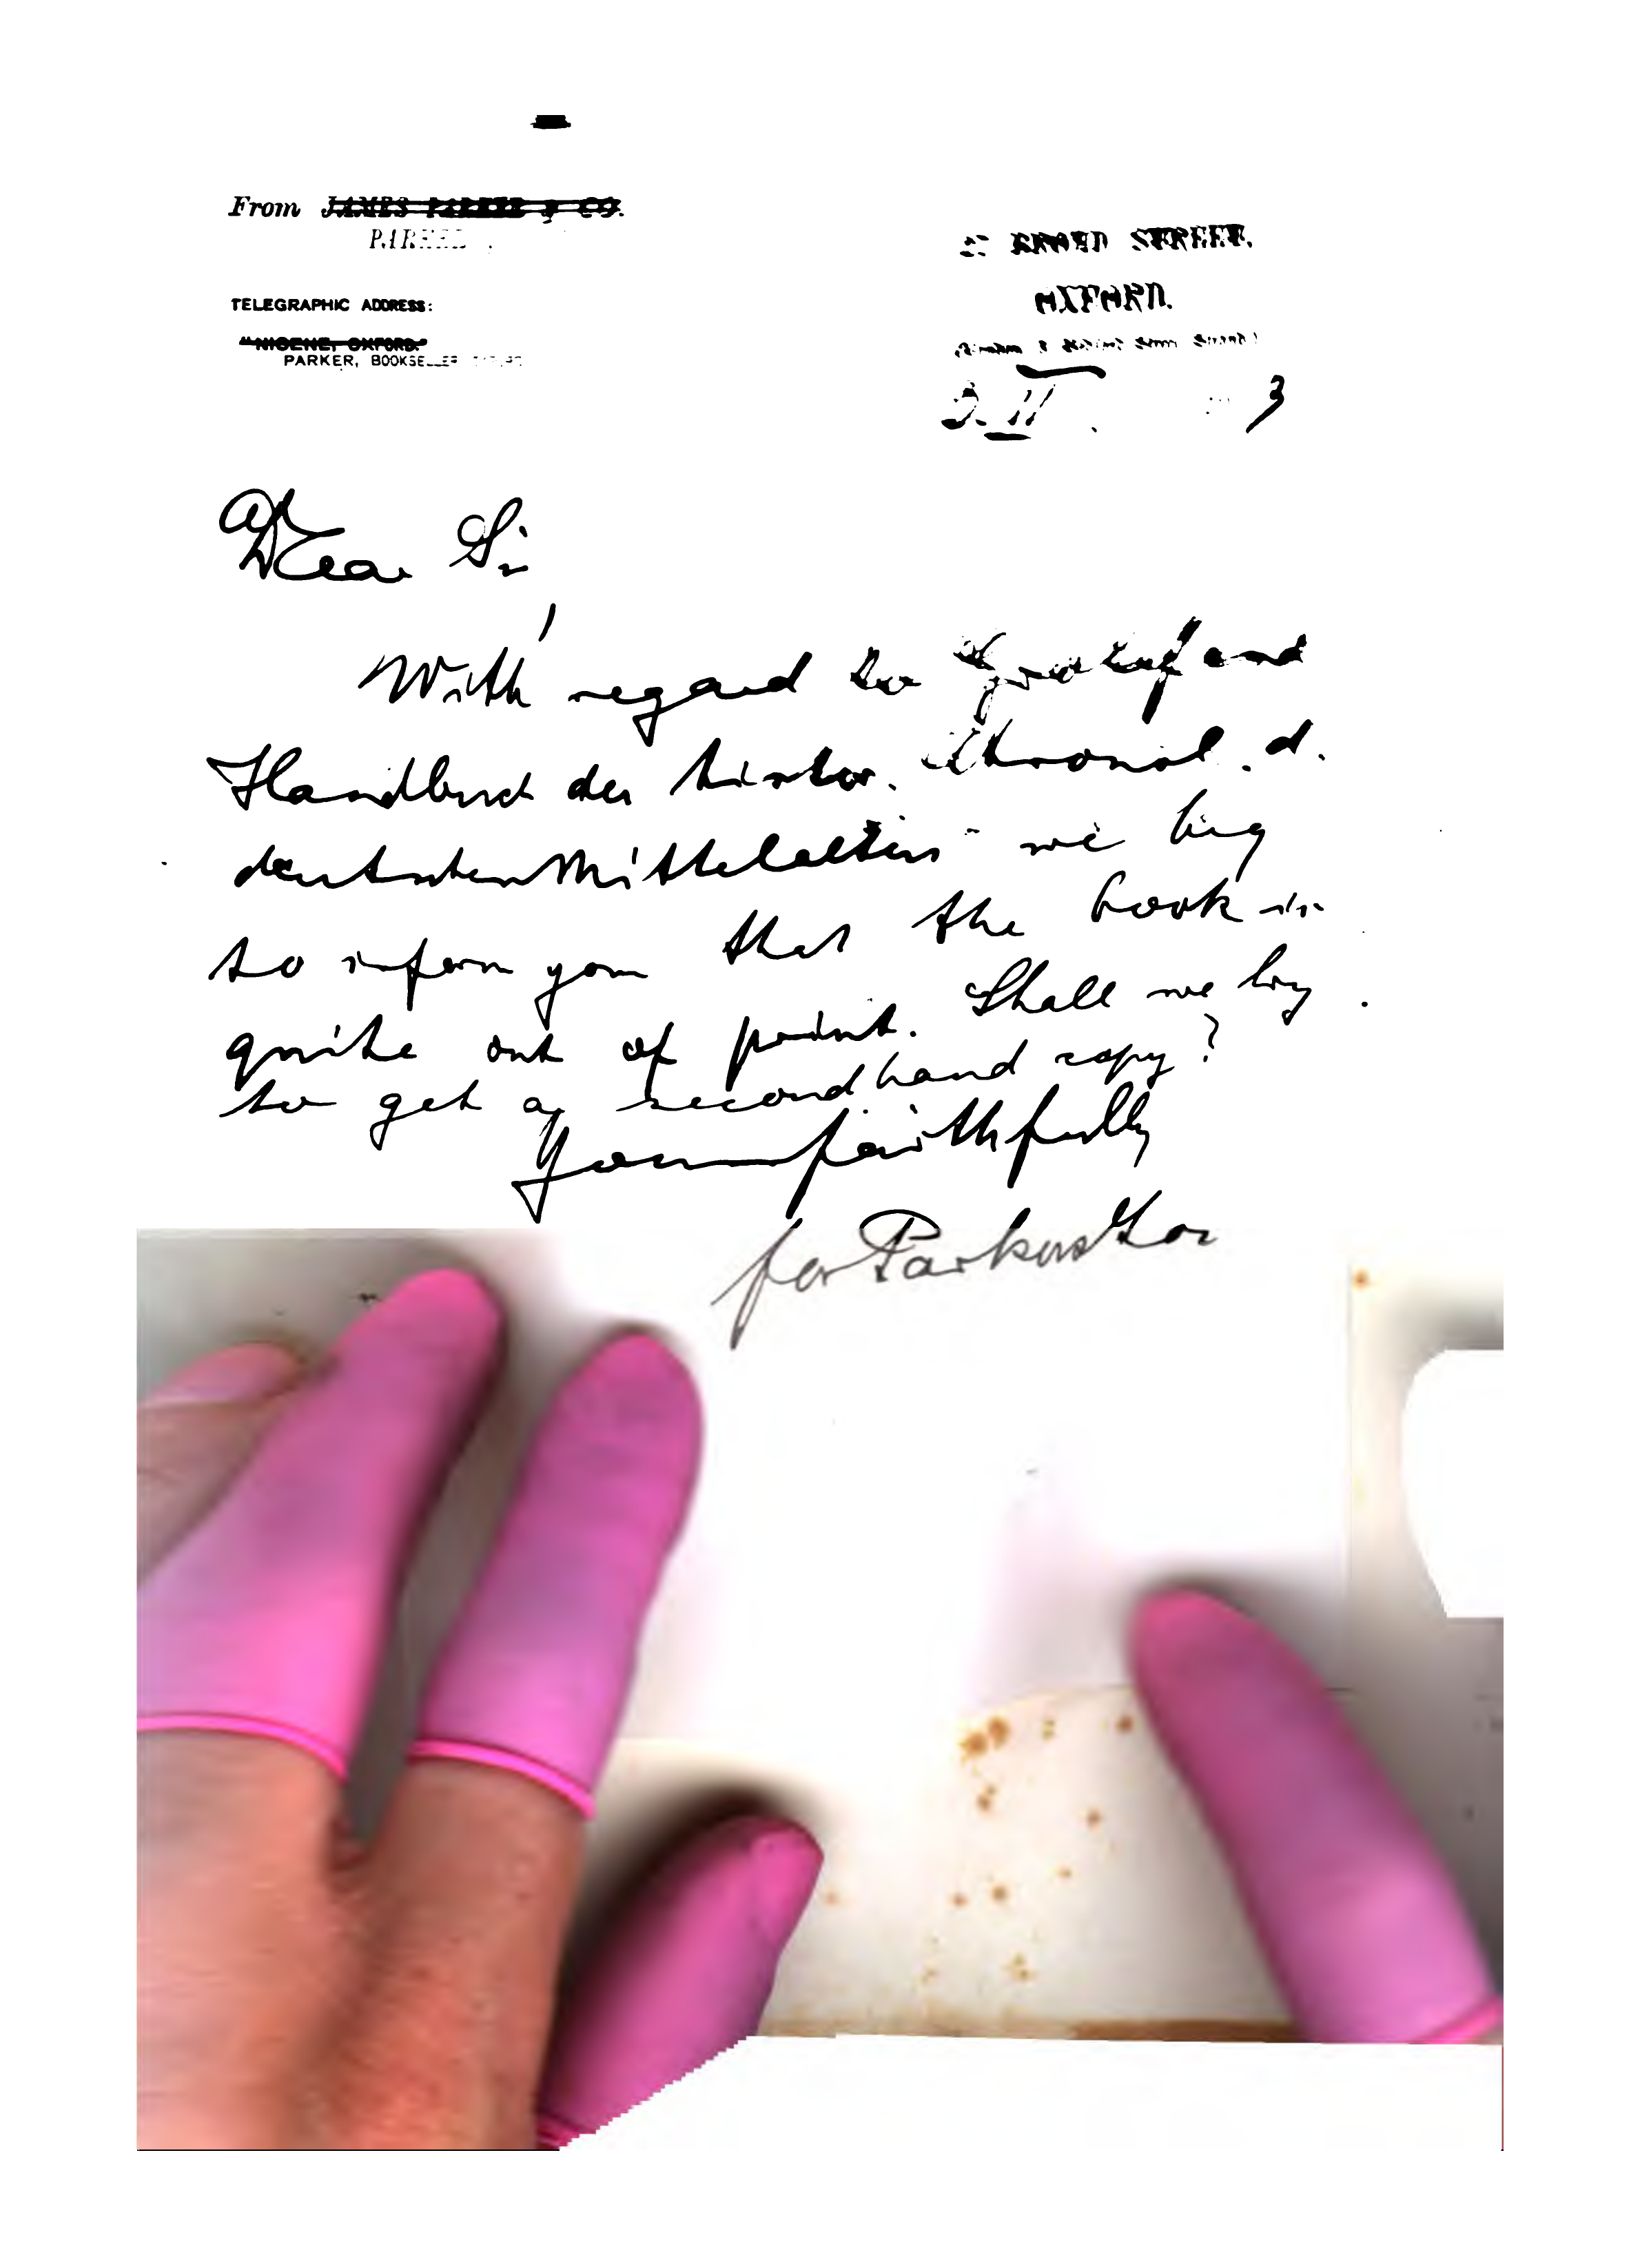 From JAMES PARKER & CO.
PARKER
BROAD STREET,
OXFORD.
TELEGRAPHIC ADDRESS:
"NICENE, OXFORD."
PARKER, BOOKSELLER
3
Dear Sir
With regard to Grotefend
Handbuch der histor. Chronol. d.
deutschen Mittelalters we beg
to inform you that the book is
quite out of print. Shall we try
to get a secondhand copy?
Yours faithfully
for Parker & Son